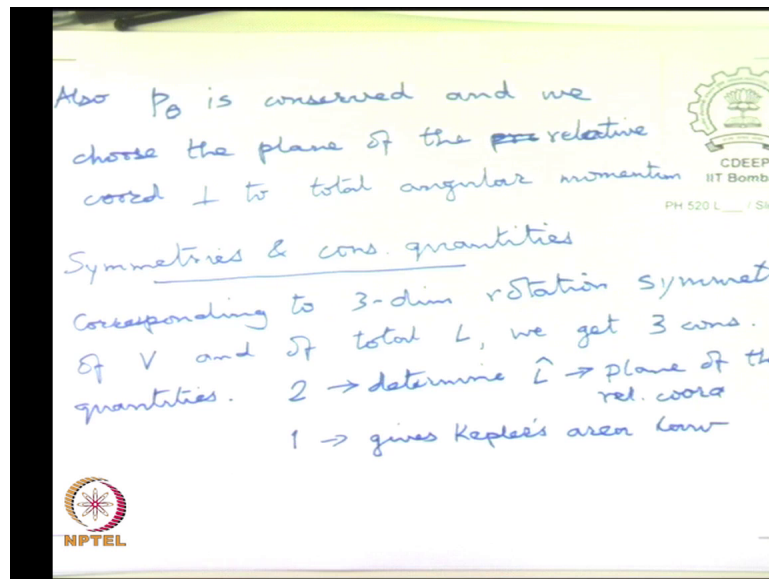 Also Pθ is conserved and we
choose the plane of the relative
coord ⊥ to total angular momentum
CDEEP
IIT Bomb
PH 520 L___ / Sl
Symmetries & cons. quantities
corresponding to 3-dim rotation symmet
of V and of total L, we get 3 cons.
quantities. 2 → determine L̂ → plane of th
rel. coord
1 → gives Kepler's area law
NPTEL